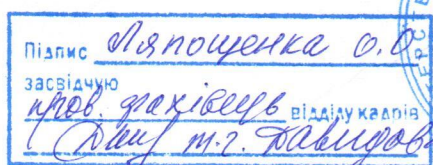 Підпис Ляпощенка О.О
засвідчую
пров. фахівець відділу кадрів
Т.Г. Давидов